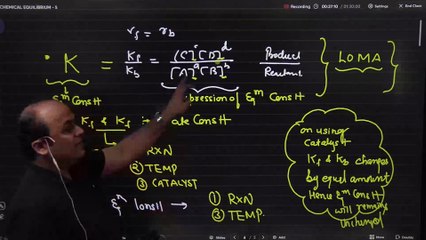 CHEMICAL EQUILIBRIUM - 5
End Class
r_f = r_b
• K = K_f / K_b = [C]^c [D]^d / [A]^a [B]^b Product / Reactant } LOMA
Eq^m Const pression of Eq^m Const
K_f & K_b ate Const
RXN
② TEMP
③ CATALYST
Eq^n Const → ① RXN
③ TEMP.
on using
Catalyst
K_f & K_b changes
by equal amount
Hence Eq^m Const
will remains
Unchanged